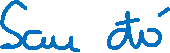 Sau đó